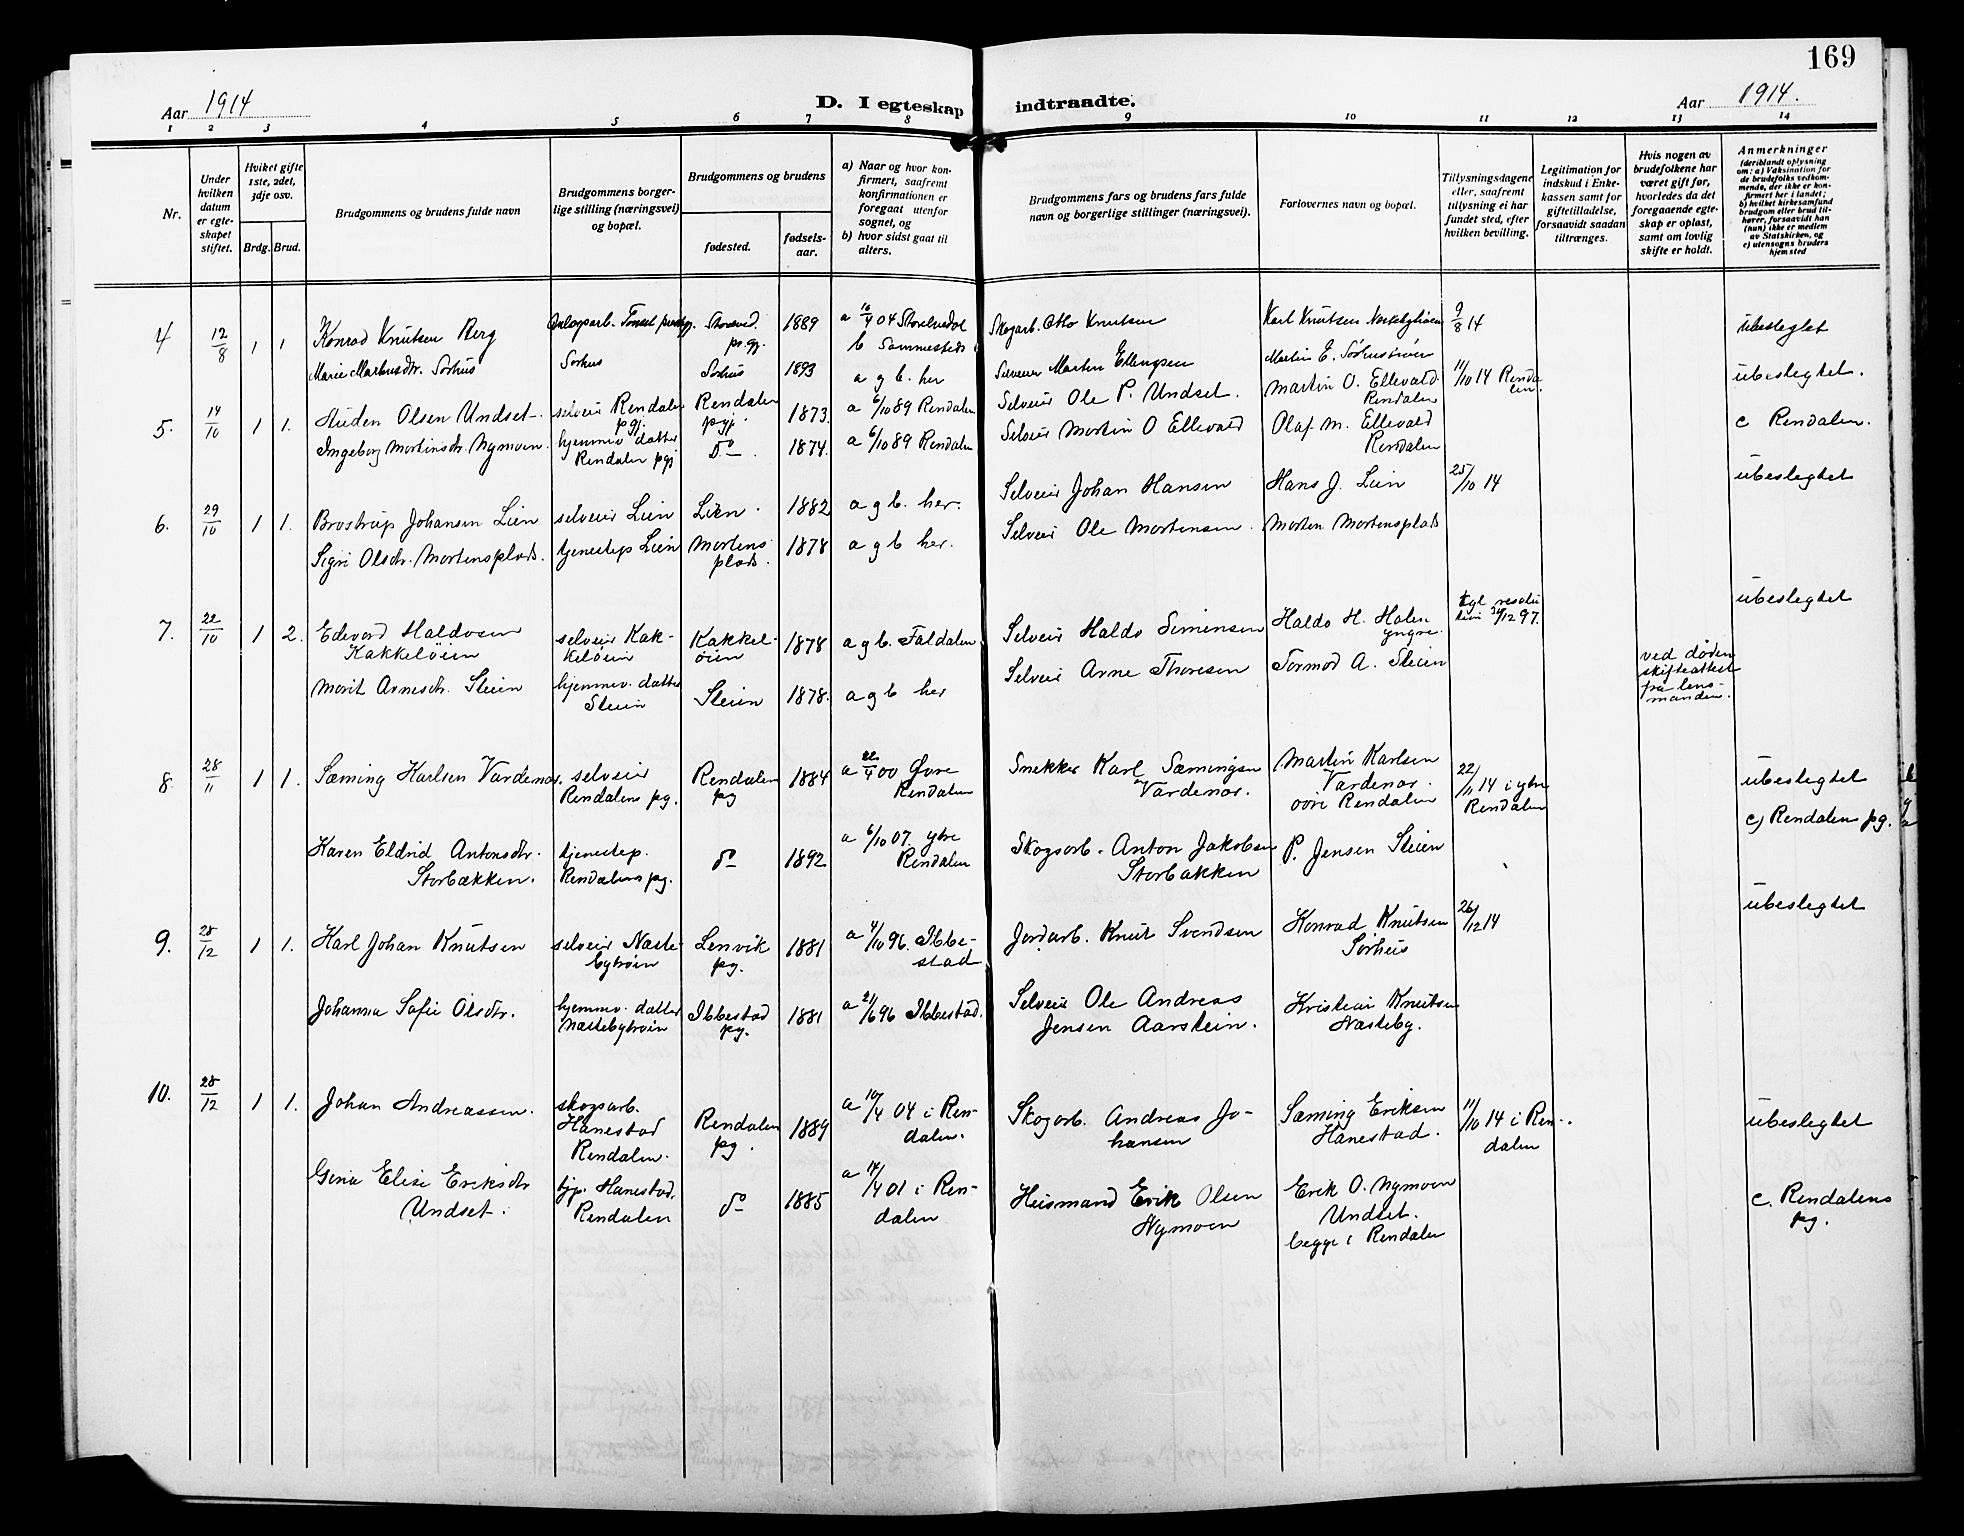 169
Aar 1914
D. I egteskap indtraadte.
Aar 1914.
1 2 3 4 5 6 7 8 9 10 11 12 13 14
Nr.
Under hvilken datum er egteskapet stiftet.
Hviket gifte 1ste, 2det, 3dje osv.
Brdg. Brud.
Brudgommens og brudens fulde navn
Brudgommens borgerlige stilling (næringsvei) og bopæl.
Brudgommens og brudens
fødested.
fødselsaar.
a) Naar og hvor konfirmert, saafremt konfirmationen er foregaaet utenfor sognet, og
b) hvor sidst gaat til alters.
Brudgommens fars og brudens fars fulde navn og borgerlige stillinger (næringsvei).
Forlovernes navn og bopæl.
Tillysningsdagene eller, saafremt tillysning ei har fundet sted, efter hvilken bevilling.
Legitimation for indskud i Enkekassen samt for giftetilladelse, forsaavidt saadan tiltrænges.
Hvis nogen av brudefolkene har været gift før, hvorledes da det foregaaende egteskap er opløst, samt om lovlig skifte er holdt.
Anmerkninger
(deriblandt oplysning om: a) Vaksination for de brudefolks vedkommende, der ikke er konfirmert her i landet; b) hvilket kirkesamfund brudgom eller brud tilhører, forsaavidt han (hun) ikke er medlem av Statskirken, og c) utensogns bruders hjemsted
4 12/8 1 1 Konrad Knutsen Berg
1889 a 10/4 04 Storelvedal
b Sammesteds
Skogarb. Otto Knutsen
Karl Knutsen
9/8 14
ubeslegtet
Marie Martinsdtr. Sørhus Sørhus Sørhus 1893 a g b. her
Selveier Martin Ellingsen
Martin E. Sørhus
5. 14/10 1 1. Auden Olsen Undset selveier Rendalen pgj. Rendalen pgj. 1873. a 6/10 89 Rendalen
Selveier Ole P. Undset.
Martin O. Ellevold Rendalen
11/10 14 Rendalen.
ubeslegtet.
Ingeborg Martinsdtr. Nymoen. hjemmev datter Rendalen pgj do 1874. a 6/10 89 Rendalen
Selveier Martin O Ellevold
Olaf M. Ellevold Rendalen
c Rendalen.
6. 29/10 1 1. Brostrup Johansen Lien selveier Lien Lien. 1882 a g b. her.
Selveier Johan Hansen
Hans J. Lien
25/10 14
ubeslegtet
Sigri Olsdtr. Mortensplads. tjenestep Lien Mortensplads. 1878 a g b her.
Selveier Ole Mortensen.
Morten Mortensplads
7. 22/10 1 2. Edvard Haldosen Kakkeløien selveier Kakkeløien Kakkeløien 1878 a g b. Faldalen
Selveier Haldo Simensen
Haldo H. Holen yngre.
kgl resolution 12 97.
ubeslegtet
ved døden skifteattest på lensmanden.
Marit Arnesdtr. Steien hjemmev. datter Steien Steien 1878. a g b her
Selveier Arne Thoresen
Tormod A. Steien
8. 28/11 1 1. Sæming Karlsen Vardenær. selveier Rendalens pg. Rendalen pg 1884 a 22/4 00 Øvre Rendalen
Snekker Karl Sæmingsen Vardenær.
Martin Karlsen Vardenær. øvre Rendalen
22/11 14 i ytre Rendalen
ubeslegtet
c) Rendalen pg.
Karen Eldrid Antonsdtr. Storbækken. tjenestep. Rendalens pg. do 1892 a 6/10 07. ytre Rendalen
Skogsarb. Anton Jakobsen Storbækken
P. Jensen Steien
9. 28/12 1 1. Karl Johan Knutsen selveier Næstebyhøien Lenvik pg. 1881 a 4/10 96. Ibbestad
Jordarb. Knut Svendsen
Konrad Knutsen Sørhus
26/12 14
ubeslegtet
Johanna Sofie Olsdtr. hjemmev. datter Næstebyhøien Ibbestad pg. 1881 a 21/6 96 Ibbestad.
Selveier Ole Andreas Jensen Aarstein.
Kristian Knutsen Næsteby.
10. 28/12 1 1. Johan Andreassen. skogsarb. Hanestad Rendalen. Rendalen pg. 1889 a 10/4 04 i Rendalen.
Skogarb. Andreas Johansen
Sæming Eriksen Hanestad.
11/10 14 i Rendalen
ubeslegtet
Gina Elise Eriksdtr Undset. tjp. Hanestad, Rendalen do 1885 a 14/4 01 i Rendalen
Husmand Erik Olsen Nymoen
Erik O. Nymoen Undset. begge i Rendalen
c. Rendalens pg.